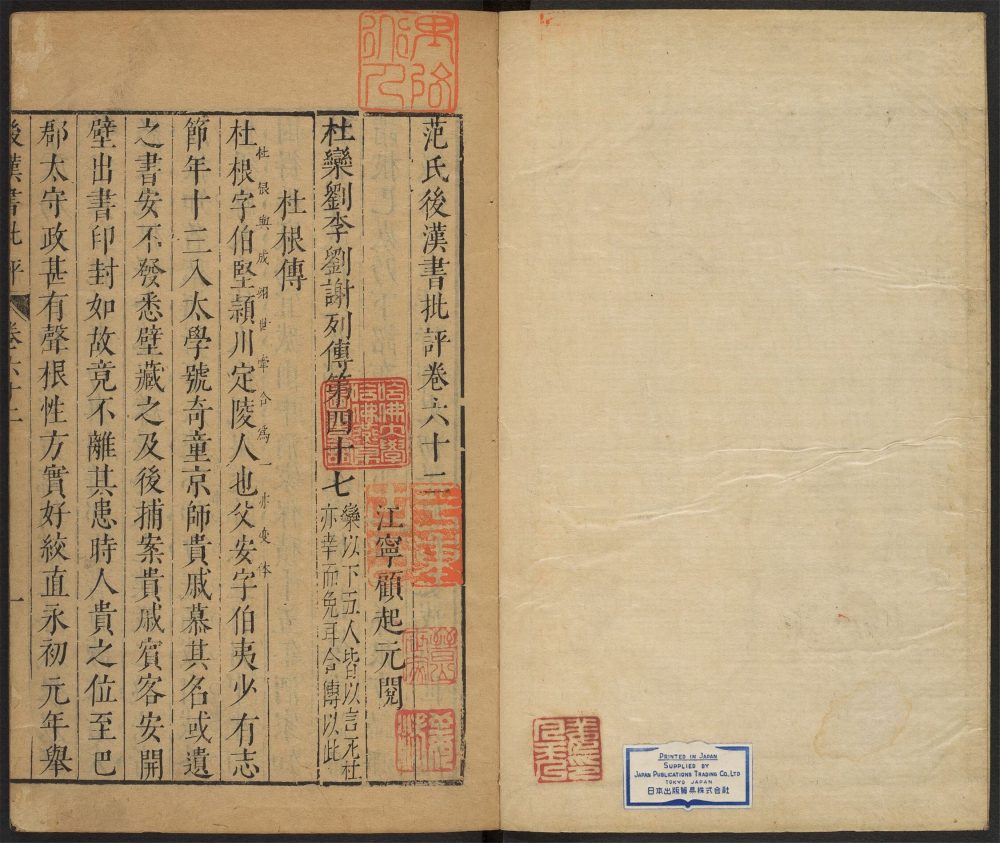 PRINTED IN JAPAN
SUPPLIED BY
JAPAN PUBLICATIONS TRADING CO., LTD
TOKYO JAPAN
日本出版貿易株式会社
范氏後漢書批評卷六十二
江寧顧起元閱
杜欒劉李劉謝列傳第四十七
欒以下五人皆以言死杜
亦幸而免耳合傳以此
哈佛大學
杜根傳
杜根與成翊世牽合爲一亦變体
杜根字伯堅頴川定陵人也父安字伯夷少有志
節年十三入太學號奇童京師貴戚慕其名或遺
之書安不發悉壁藏之及後捕案貴戚賓客安開
壁出書印封如故竟不離其患時人貴之位至巴
郡太守政甚有聲根性方實好絞直永初元年舉
後漢書批評 卷六十二 一